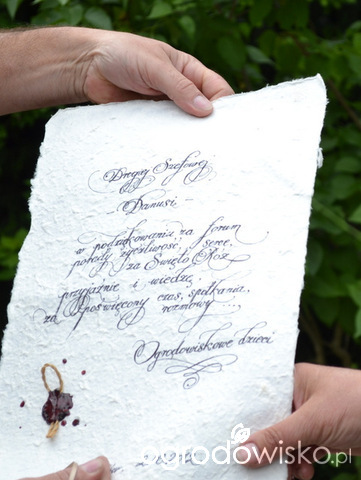 Drogiej Szefowej
- Danusi -
w podziękowaniu za forum
porady, życzliwość, serce,
za Święto Róż
przyjaźnie i wiedzę,
za poświęcony czas, spotkania,
rozmowy ...,
Ogrodowiskowe dzieci
ogrodowisko.pl